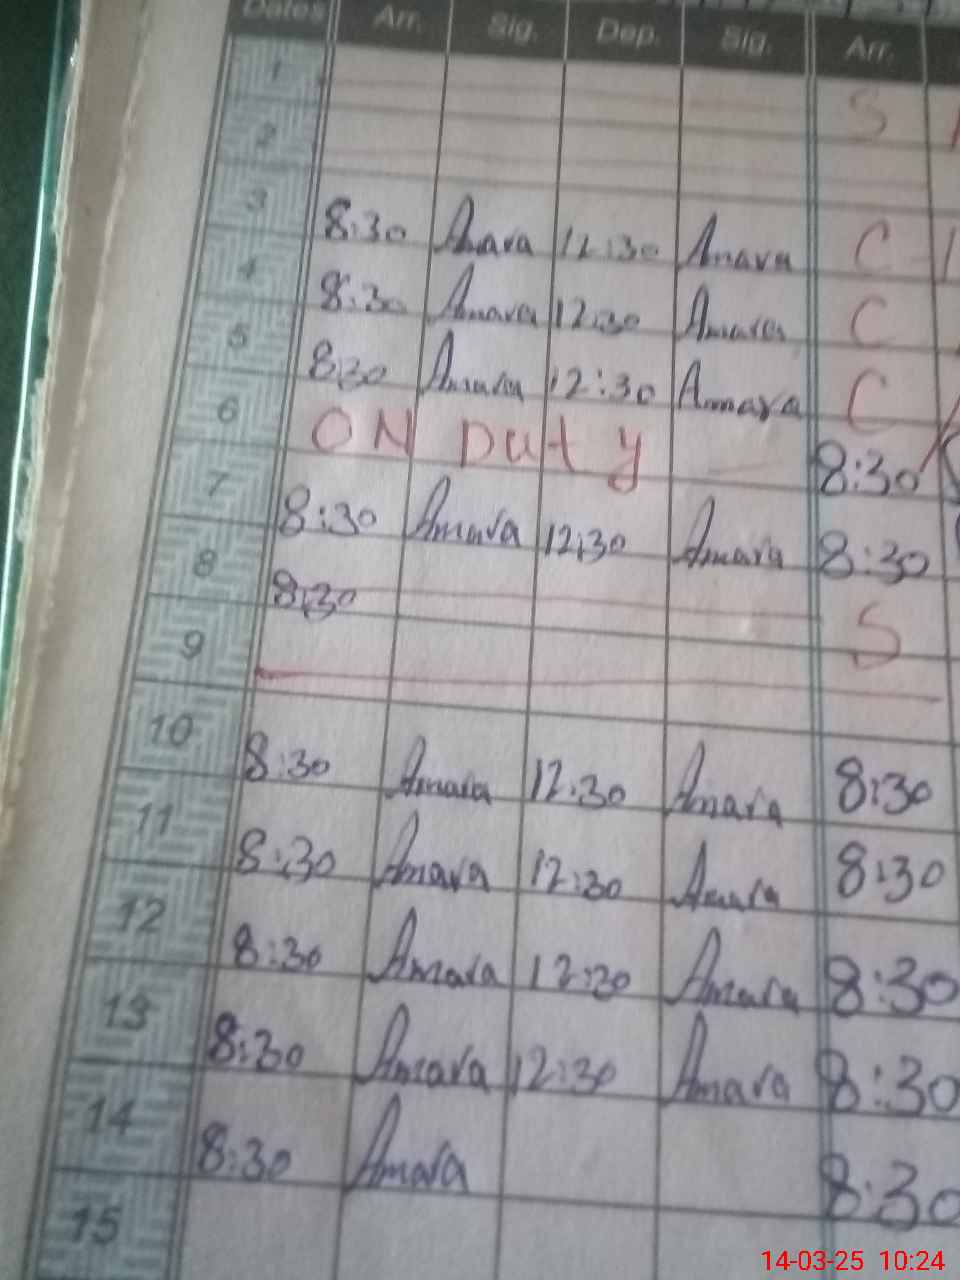 Dates Arr. Sig. Dep. Sig. Arr.
1 S
2
3 8:30 Amara 12:30 Amara C
4 8:30 Amara 12:30 Amara C
5 8:30 Amara 12:30 Amara C
6 ON Duty 8:30
7 8:30 Amara 12:30 Amara 8:30
8 8:30 S
9
10 8:30 Amara 12:30 Amara 8:30
11 8:30 Amara 12:30 Amara 8:30
12 8:30 Amara 12:30 Amara 8:30
13 8:30 Amara 12:30 Amara 8:30
14 8:30 Amara 8:30
15
14-03-25 10:24